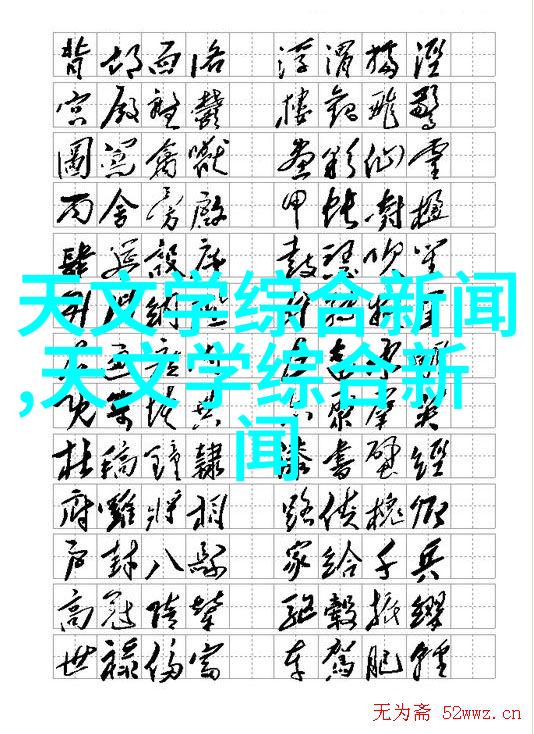 背邙面洛 浮渭據涇
宮殿盤鬱 樓觀飛驚
圖寫禽獸 畫彩仙靈
丙舍傍啟 甲帳對楹
肆筵設席 鼓瑟吹笙
天文学综合新闻
,天文学综合新
闻
杜稿鍾隸 漆書壁經
府羅將相 路俠槐卿
戶封八縣 家給千兵
高冠陪輦 驅轂振纓
世祿侈富 車駕肥輕
无为斋 52wwz.cn